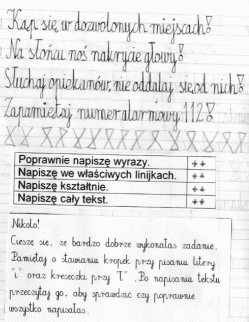 Kąp się w dozwolonych miejscach!
Na słońcu noś nakrycie głowy!
Słuchaj opiekunów, nie oddalaj się od nich!
Zapamiętaj numer alarmowy 112!
Poprawnie napiszę wyrazy. ++
Napiszę we właściwych linijkach. ++
Napiszę kształtnie. ++
Napiszę cały tekst. ++
Nikolo!
Cieszę się, że bardzo dobrze wykonałaś zadanie.
Pamiętaj o stawianiu kropek przy pisaniu litery
"i" oraz kreseczki przy "ł". Po napisaniu tekstu
przeczytaj go, aby sprawdzić czy poprawnie
wszystko napisałaś.